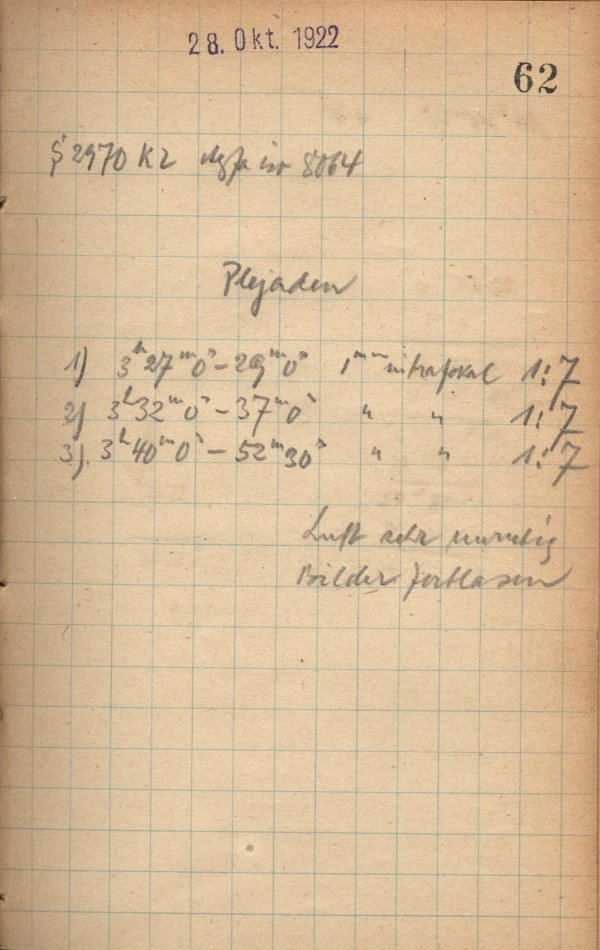 28. Okt. 1922
62
§ 2970 K2 Agfa iso 8064
Plejaden
1) 3h27m0s – 29m0s 1mm intrafokal 1:7
2) 3h32m0s – 37m0s " " 1:7
3). 3h40m0s – 52m30s " " 1:7
Luft sehr unruhig
Bilder